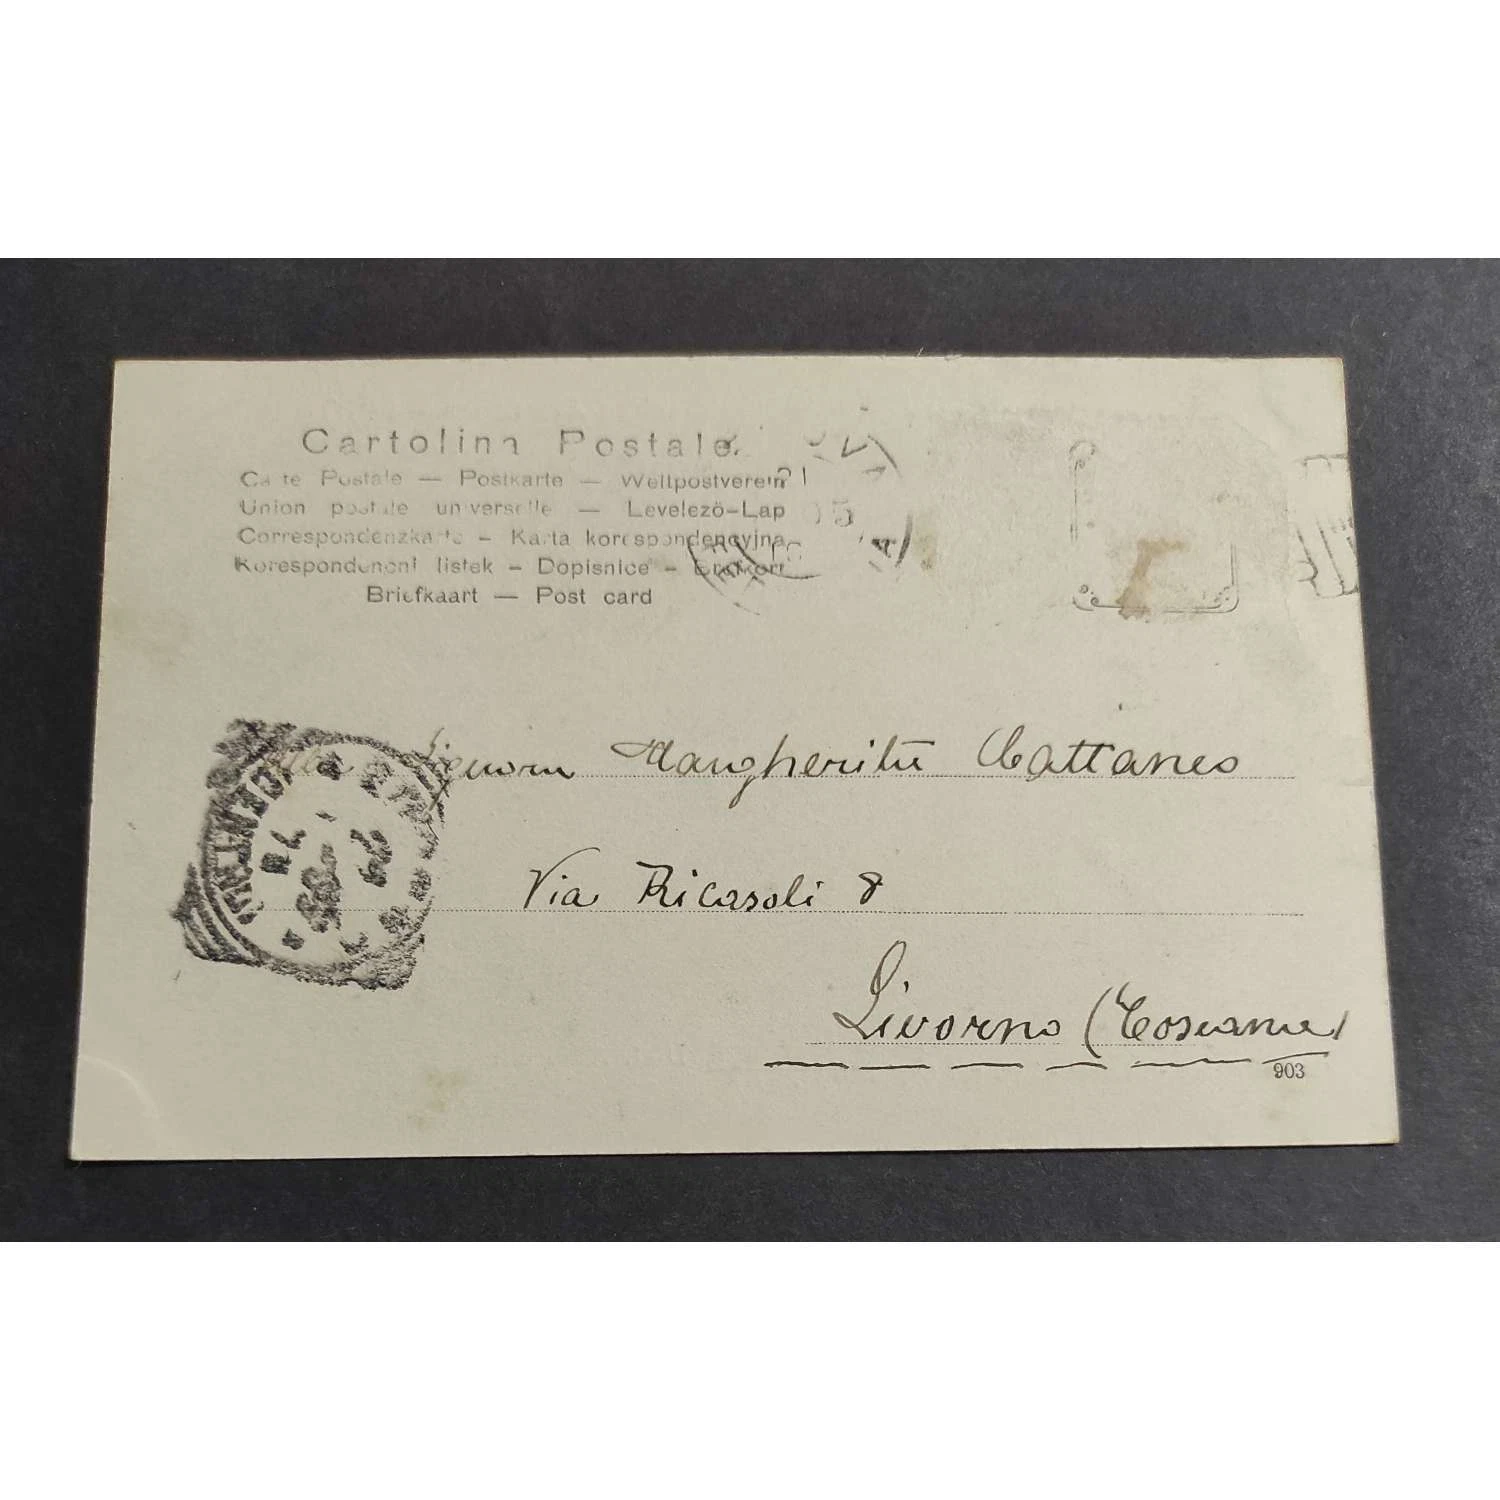 Cartolina Postale
Carte Postale — Postkarte — Weltpostverein
Union postale universelle — Levelezö-Lap
Correspondenzkarte - Karta korespondencyjna
Korespondencni listek - Dopisnice - Brefkort
Briefkaart — Post card
Signora Margherita Cattaneo
Via Ricasoli 8
Livorno (Toscana)
903